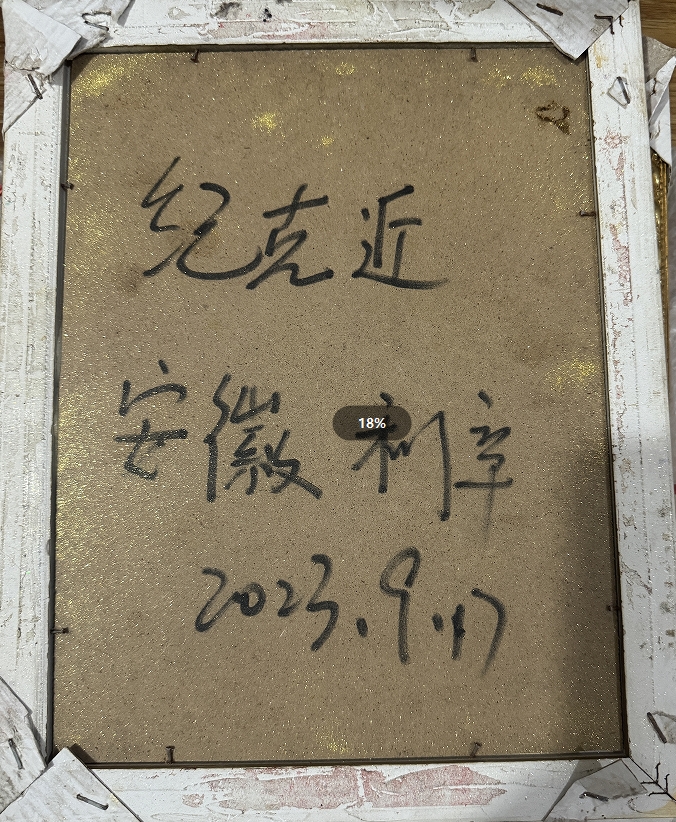 纪克近
安徽 利辛
2023.9.17
18%